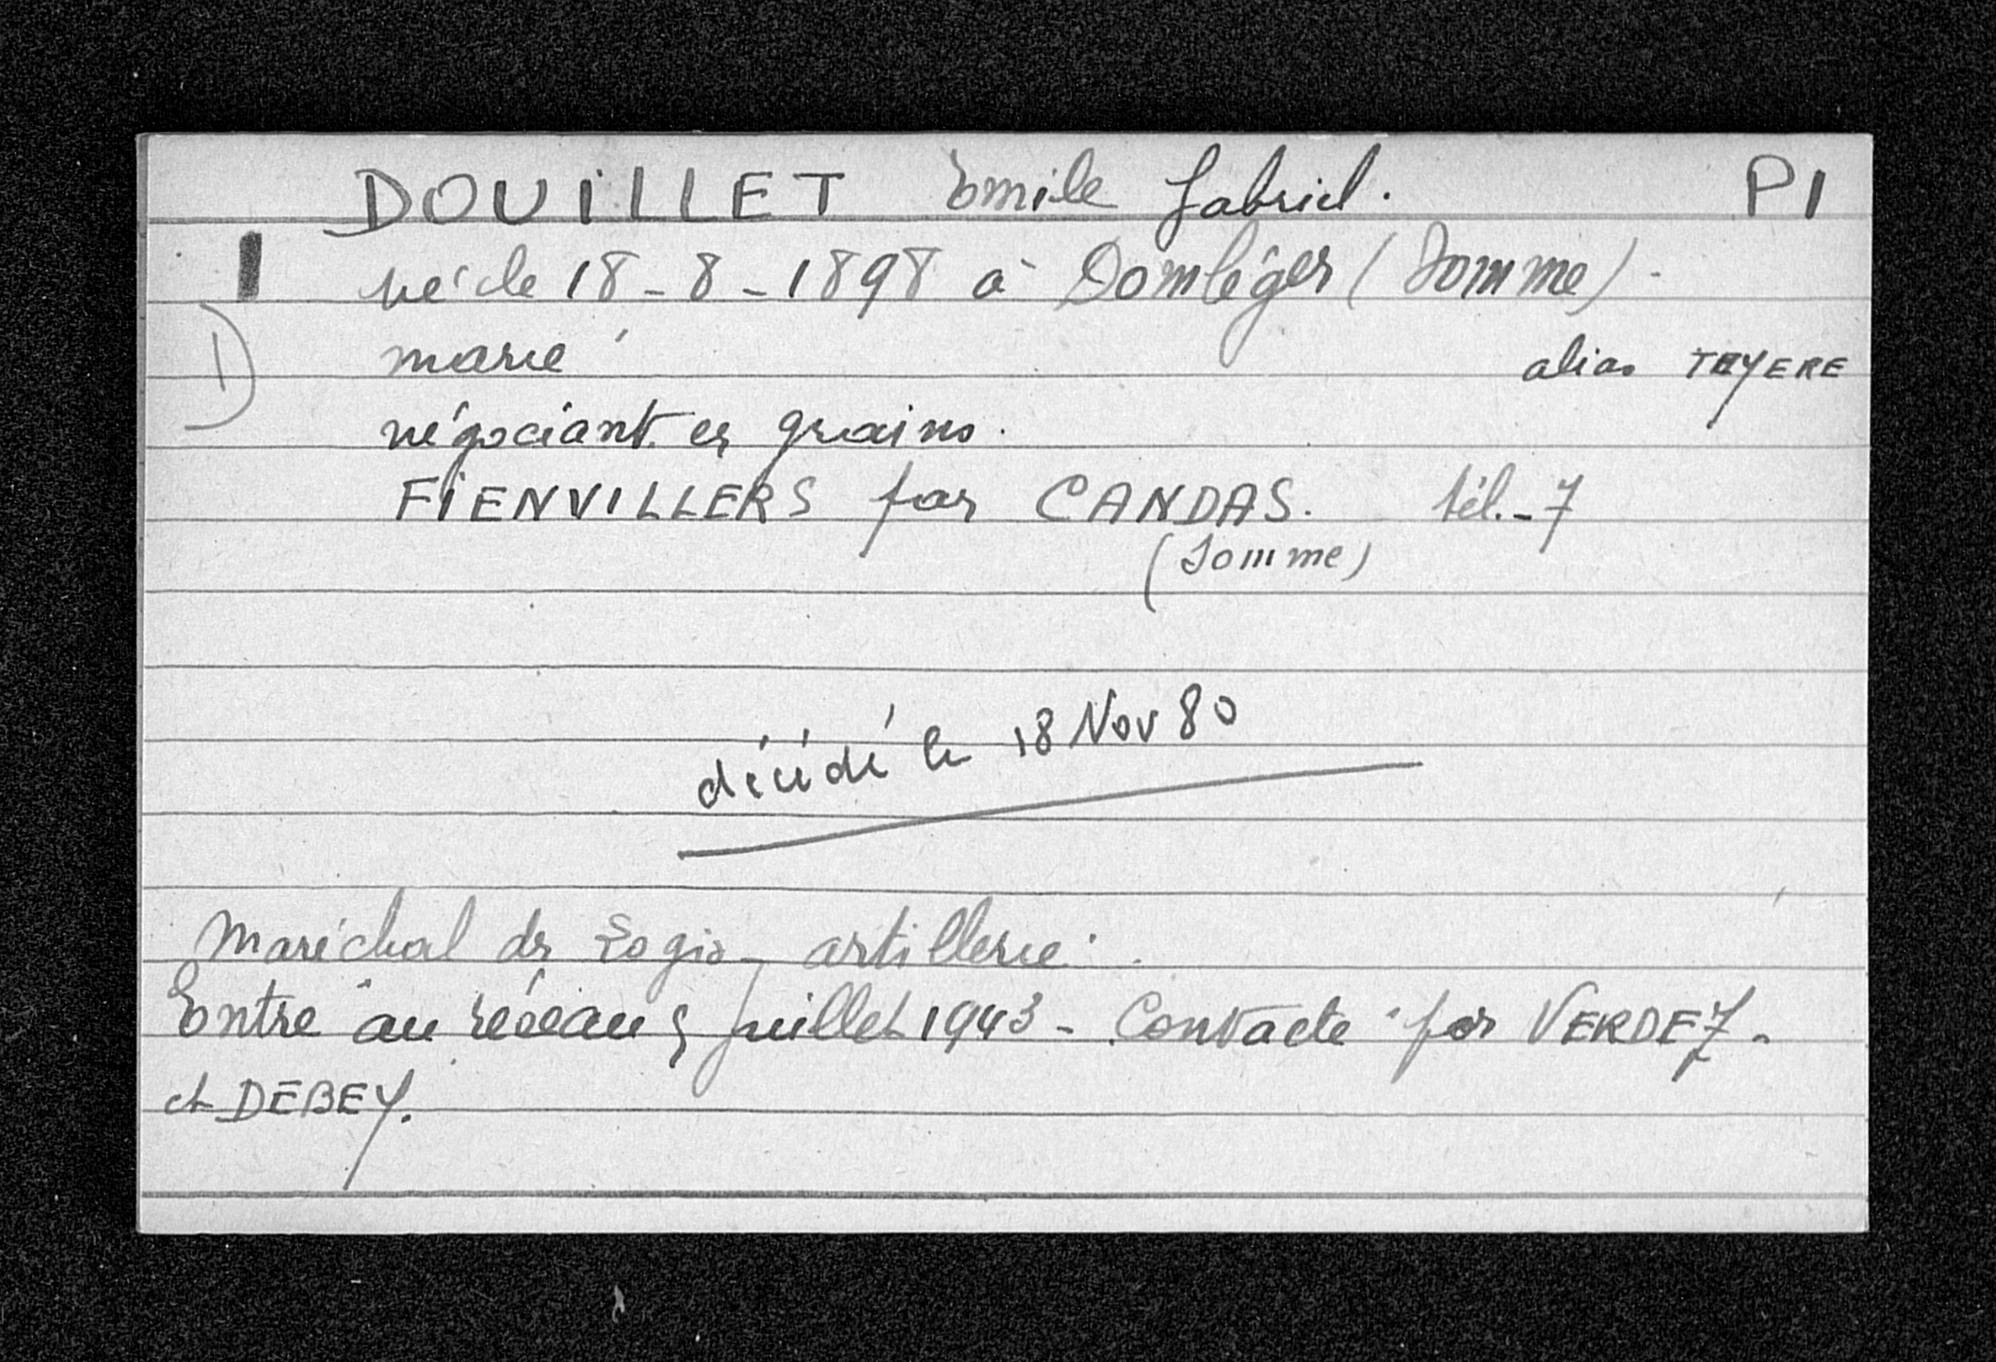 DOUILLET Emile Gabriel. P1
né le 18-8-1898 à Domléger (Somme) -
1) marié alias
négociant en grains.
FIENVILLERS par CANDAS. tél.-7
(Somme)
décédé le 18 Nov 80
Maréchal des Logis - artillerie.
Entré au réseau juillet 1943 - Contacté par VERDEZ -
et DEBEY.